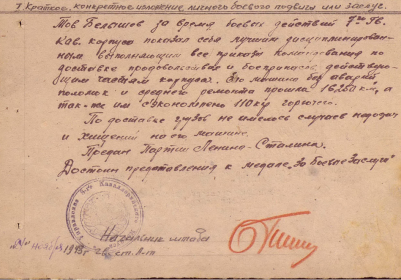 I. Краткое, конкретное изложение личного боевого подвига или заслуг.
Тов Белышев за время боевых действий 7го Гв.
Кав. корпуса показал себя лучшим дисциплинирован-
ным выполняющим все приказы командования по
доставке продовольствия и боеприпасов действую-
щим частям корпуса. Его машина без аварий,
поломок и среднего ремонта прошла 16250 км, а
так-же им сэкономлено 110 кг горючего.
По доставке грузов не имелось случаев
и хищений на его машине.
Предан Партии Ленина-Сталина.
Достоин представления к медале „За Боевые Заслуги"
Начальник штаба
1943 г. гв. ст. л-т